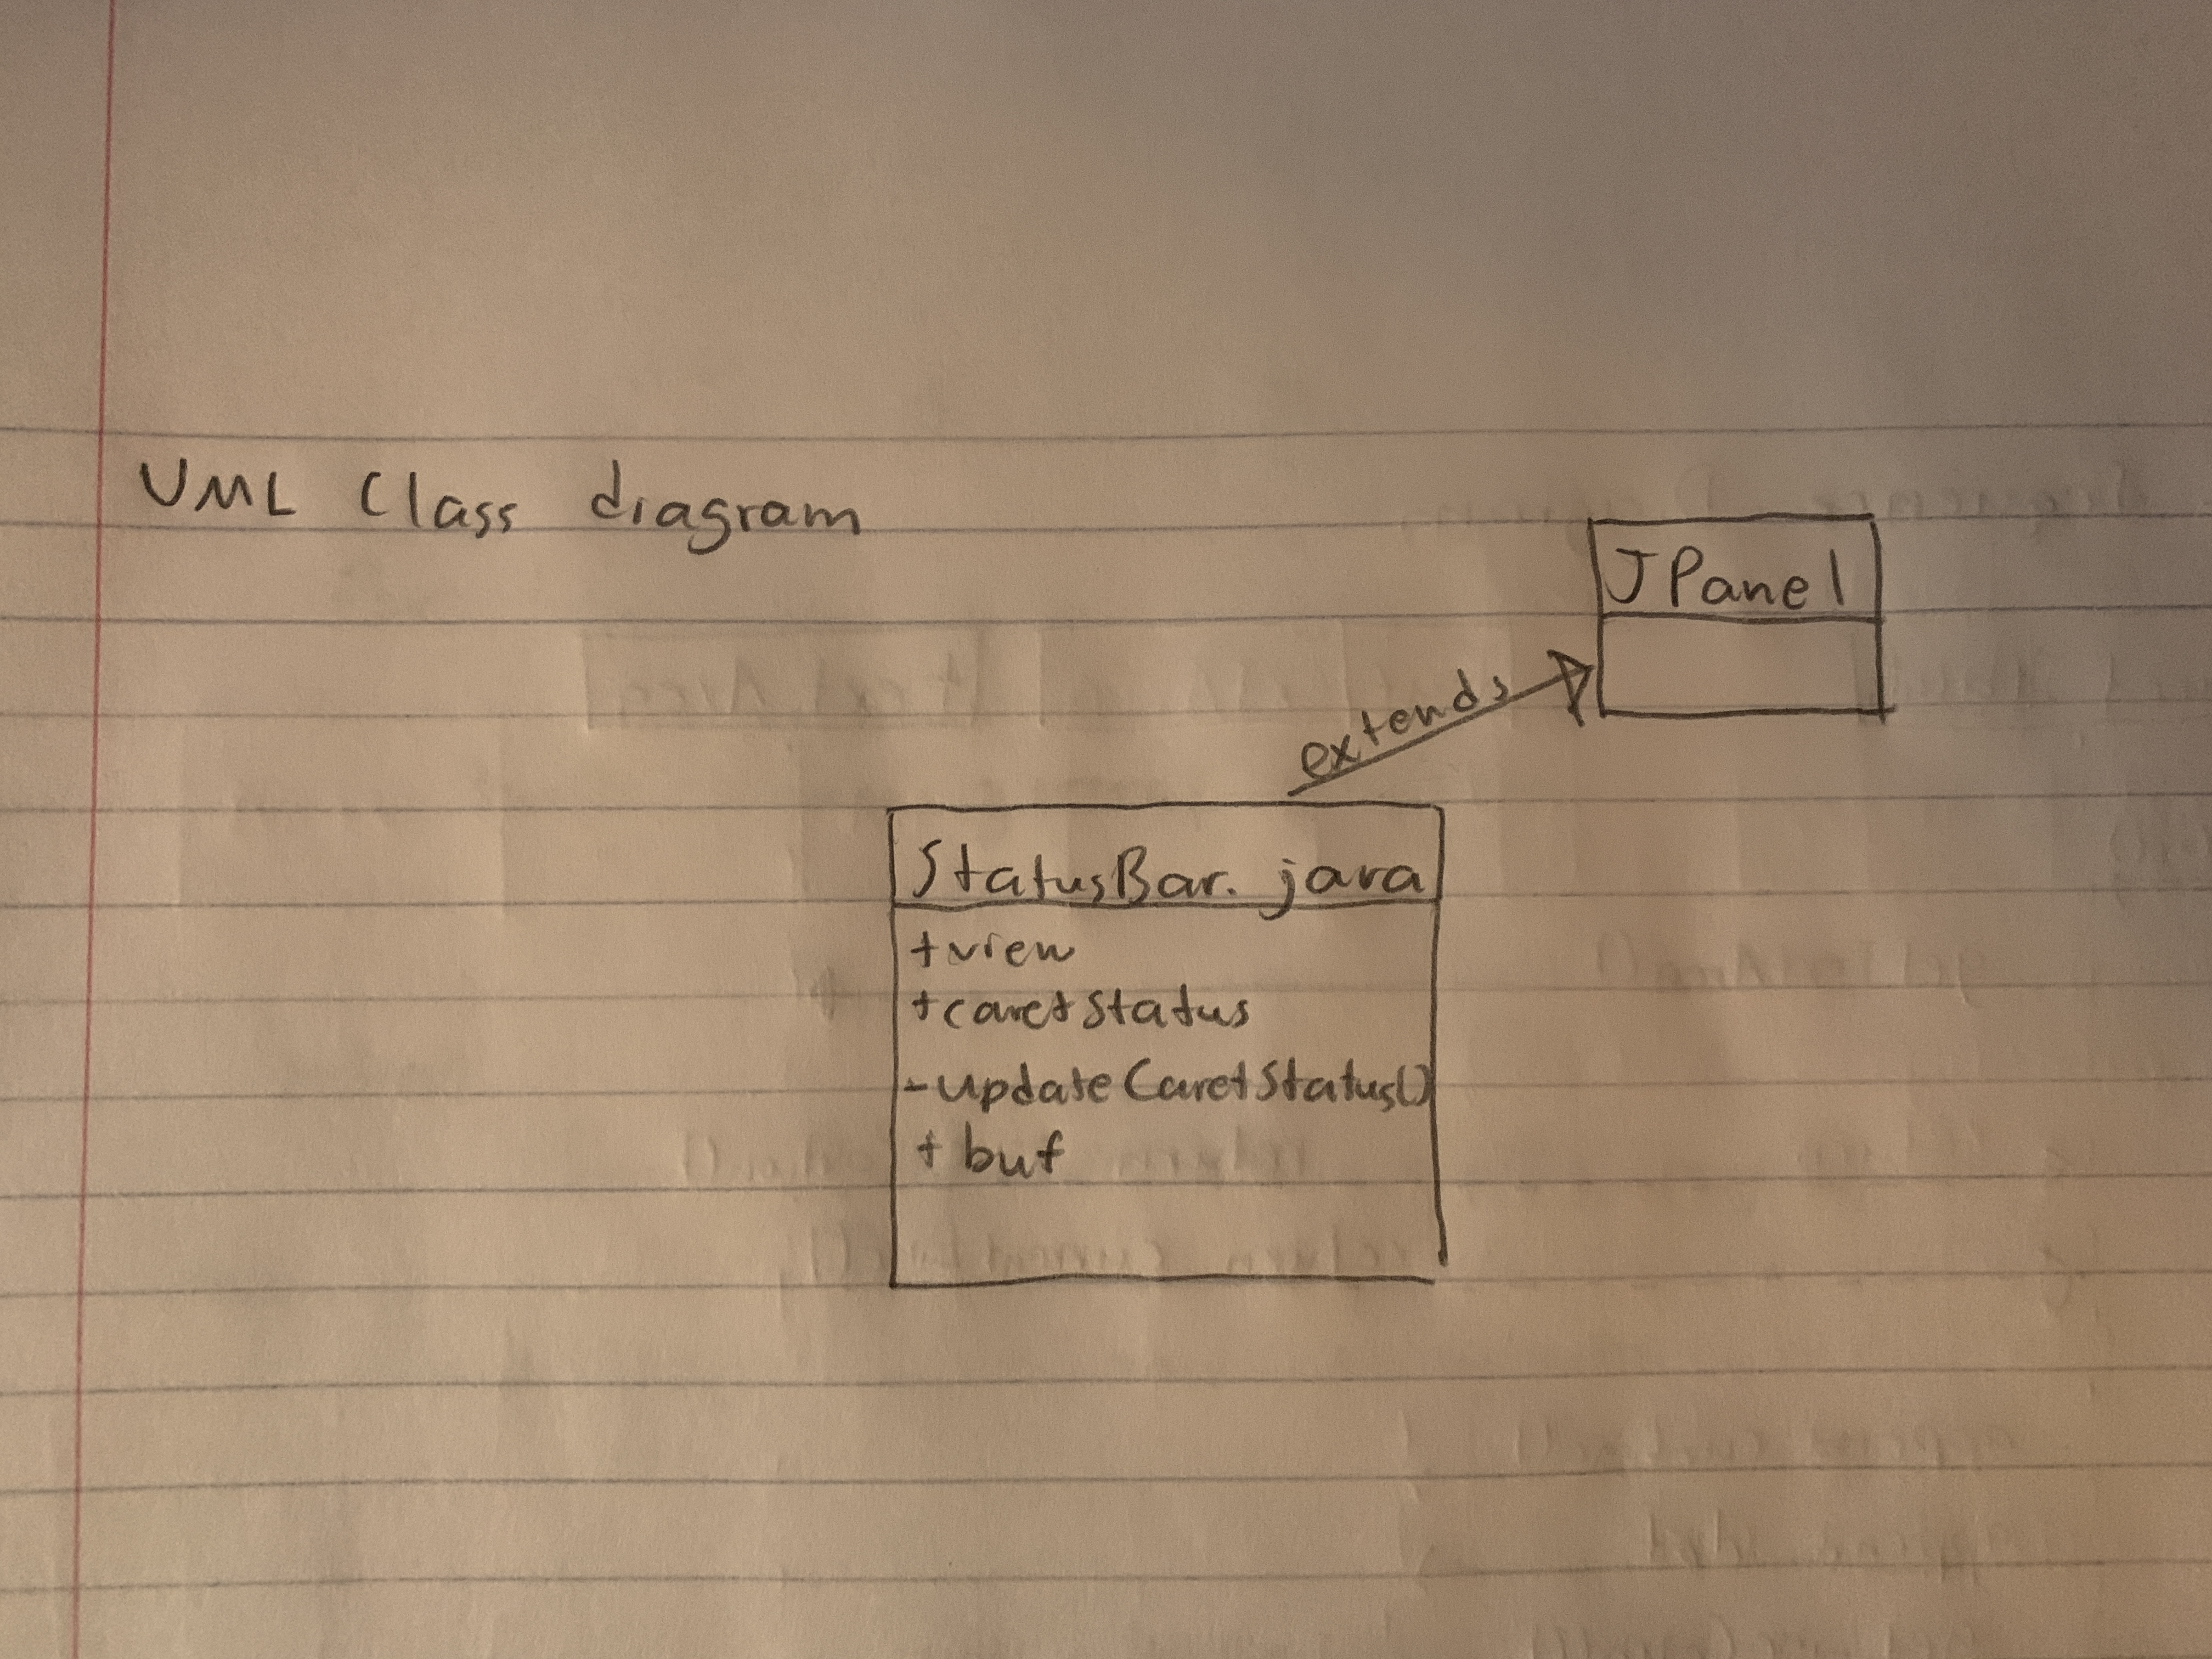 UML Class diagram
JPanel
extends
StatusBar.java
+view
+caretStatus
-updateCaretStatus()
+ buf